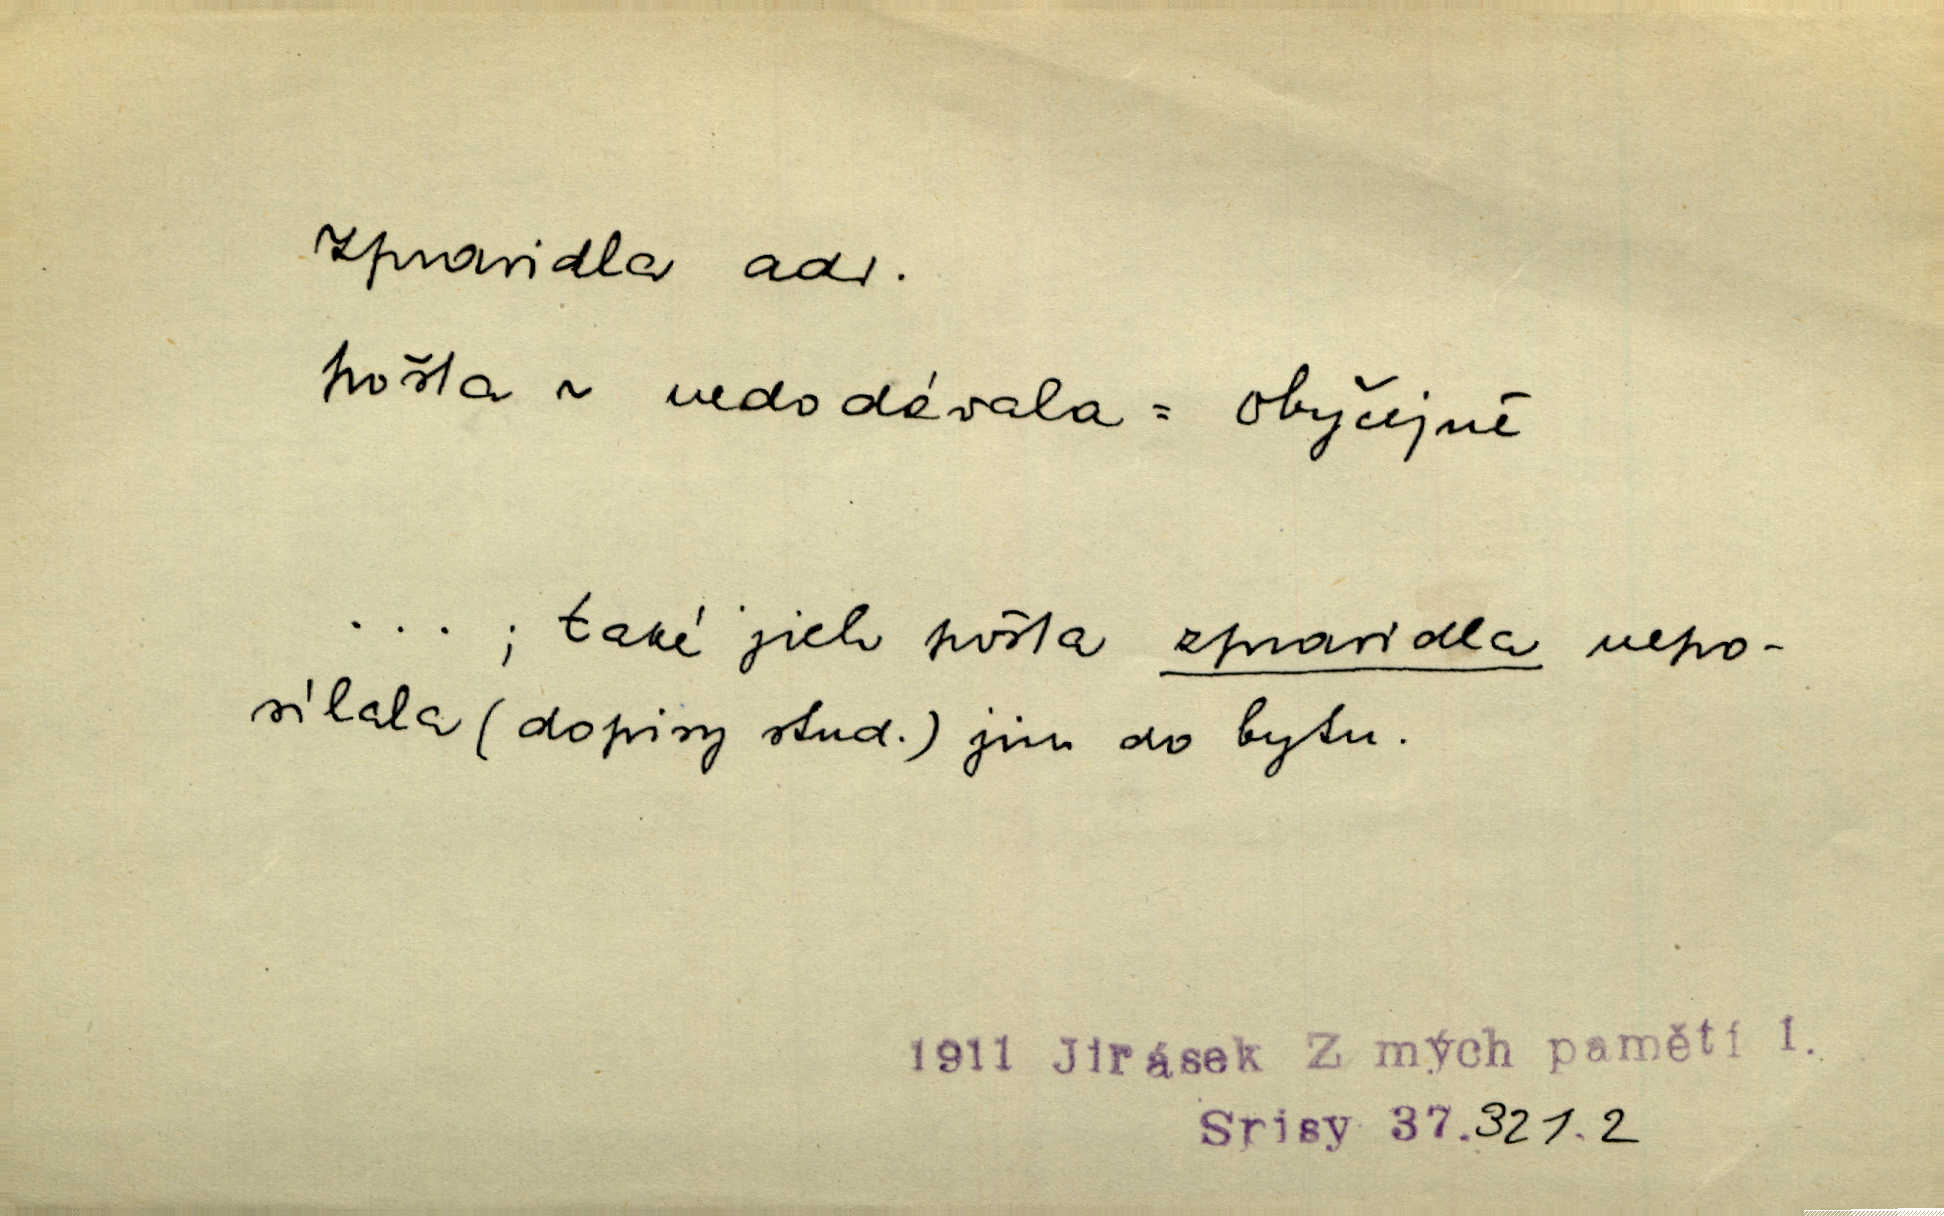 zpravidla adv.
pošta ~ nedodávala = obyčejně
. . . ; také jich pošta zpravidla nepo-
sílala (dopisy stud.) jim do bytu.
1911 Jirásek Z mých pamětí 1.
Srisy 37.321.2